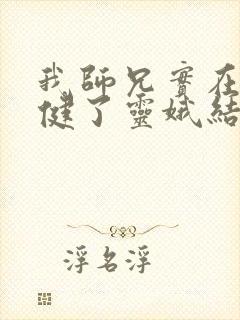 我師兄實在
健了靈娥結
浮名浮